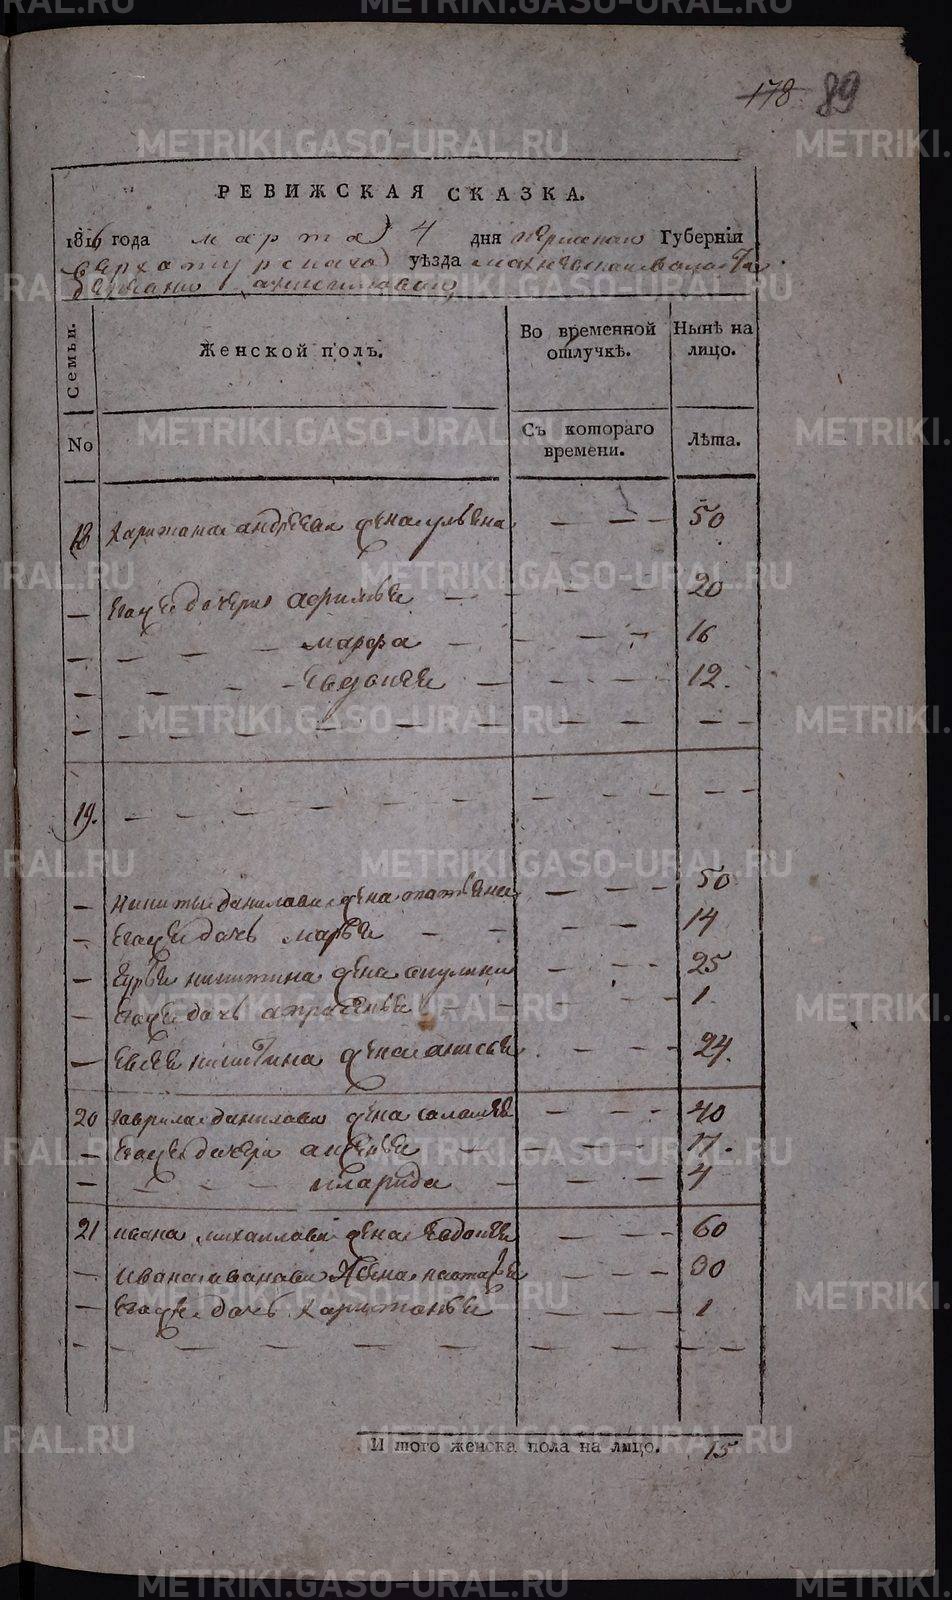 178 89
РЕВИЖСКАЯ СКАЗКА.
1816 года марта 4 дня пермской Губернiи
верхотурскаго уѣзда махневской волости
деревни
Семьи.
Женской полъ.
Во временной отлучкѣ.
Нынѣ на лицо.
No
Съ котораго времени.
Лѣта.
18 харитона андреева жена ульяна — — — 50
— Егоже дочери афимья — — — — 20
— — — — марфа — — — — 16
— — — — Евдокия — — — — 12.
— — — — — — — — — — —
19. — — — — — — — — — — —
— никиты данилова жена татьяна — — — 50
— Егоже дочь марья — — — — — 14
— гурья никитина жена акулина — — — 25
— Егоже дочь апросинья — — — — 1.
— Евсея никитина жена анисья — — — 24.
20 гаврила данилова жена саломея — — — 40
— Егоже дочери — — — — 17.
— — — — — — — 4
21 ивана михайлова жена Евдокия — — — 60
— ивана иванова жена наталья — — — 30
— Егоже дочь харитонья — — — 1
— — — — — — — — — — —
И того женска пола на лицо. 15
METRIKI.GASO-URAL.RU